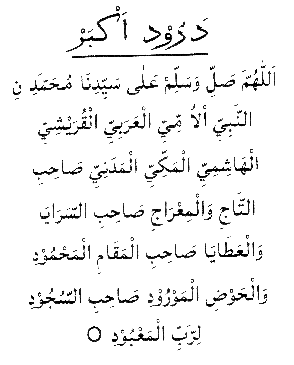 دَرُوْد اَكْبَرْ
اَللّٰهُمَّ صَلِّ وَسَلِّمْ عَلٰى سَيِّدِنَا مُحَمَّدِ نِ
النَّبِيِّ الْاُ مِّيِّ الْعَرَبِيِّ الْقُرَيْشِيِّ
الْهَاشِمِيِّ الْمَكِّيِّ الْمَدَنِيِّ صَاحِبِ
التَّاجِ وَالْمِعْرَاجِ صَاحِبِ السَّرَايَا
وَالْعَطَايَا صَاحِبِ الْمَقَامِ الْمَحْمُوْدِ
وَالْحَوْضِ الْمَوْرُوْدِ صَاحِبِ السُّجُوْدِ
لِرَبِّ الْمَعْبُوْدِ ○